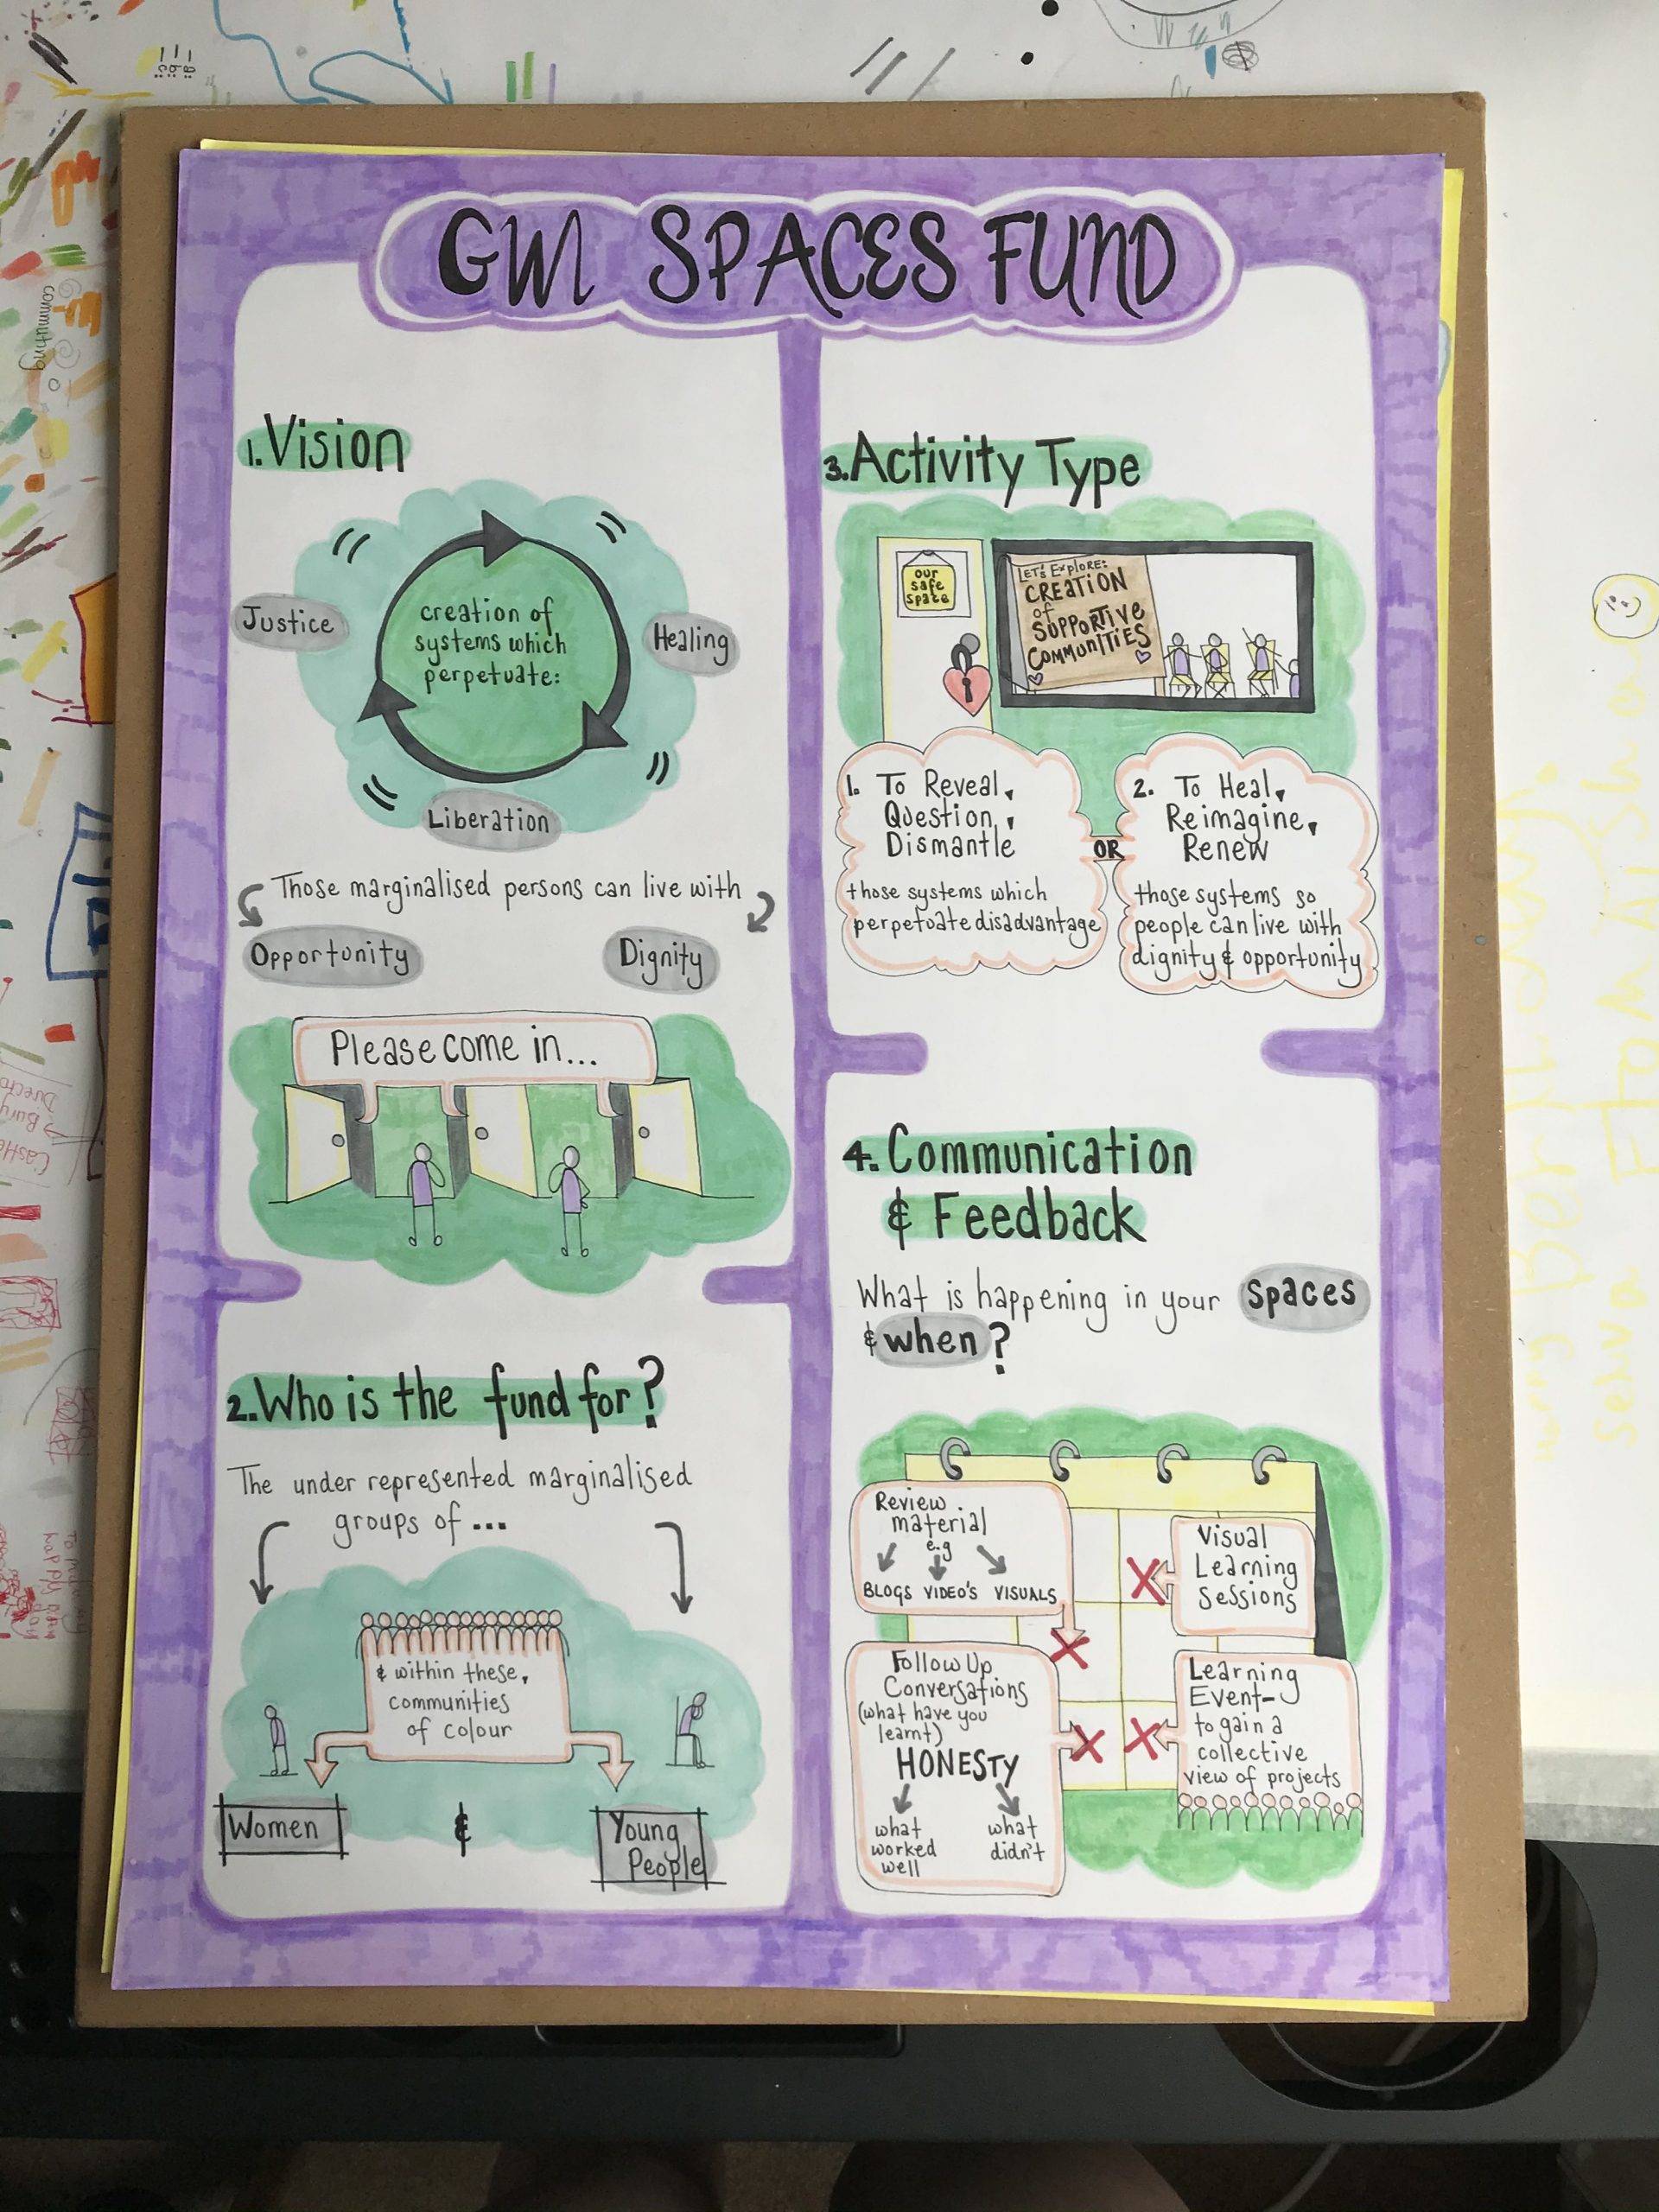 GWL SPACES FUND
1. Vision
creation of
systems which
perpetuate:
Justice
Healing
Liberation
Those marginalised persons can live with
Opportunity
Dignity
Please come in...
2. Who is the fund for?
The under represented marginalised
groups of ...
& within these,
communities
of colour
Women
&
Young
People
3. Activity Type
our
safe
space
LET'S EXPLORE:
CREATION
of
SUPPORTIVE
COMMUNITIES
1. To Reveal,
Question,
Dismantle
those systems which
perpetuate disadvantage
OR
2. To Heal,
Reimagine,
Renew
those systems so
people can live with
dignity & opportunity
4. Communication
& Feedback
What is happening in your spaces
& when?
Review
material
e.g
BLOGS VIDEO'S VISUALS
Visual
Learning
Sessions
Follow Up
Conversations
(what have you
learnt)
HONESTY
what
worked
well
what
didn't
Learning
Event-
to gain a
collective
view of projects
communiting